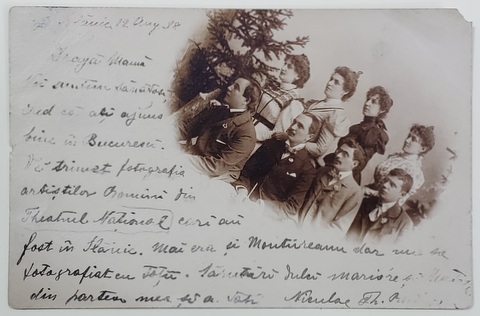 Slănic 12 Aug 98
Dragă Mamă
Noi suntem sănătoși
cred că ați ajuns
bine în București.
Vă trimet fotografia
artiștilor Români din
Theatrul Național cari au
fost în Slănic. Mai era și Montureanu dar nu se
fotografiat cu toții. Sărutări dulci
din partea mea și a
Niculae Th.